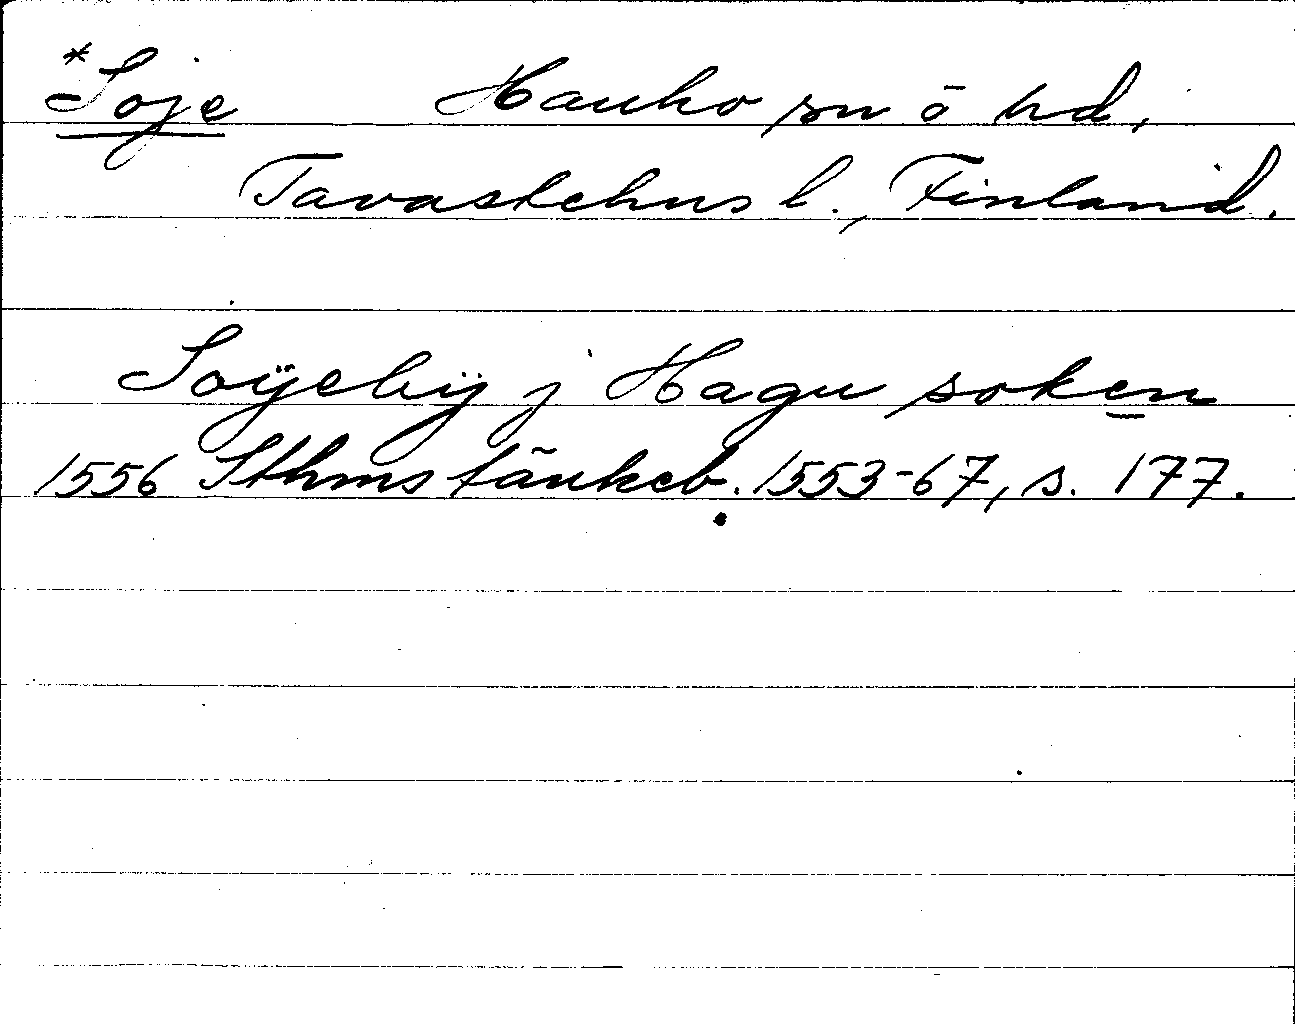 *Soje Hauho sn o hd,
Tavastehus l., Finland.
Soÿebÿ j Hagu soken
1556 Sthms tänkeb. 1553-67, s. 177.